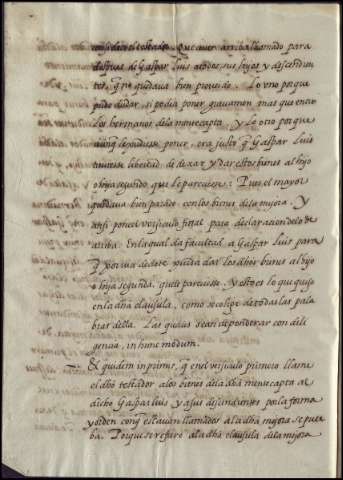 considero el testador, que aver arriba llamado para
despues de Gaspar Luis a todos sus hijos y descendien
tes, q̃ no quedava bien proveido. Lo uno porque
pudo dudar, si podia poner gravamen mas que entre
los hermanos dela mencapta, y lo otro porque
aunq̃ le pudiesse poner, era justo q̃ Gaspar Luis
tuviesse libertad de dexar y dar estos bienes al hijo
o hija segundo, que le pareciesse: Pues el mayor
quedava bien parado con los bienes dela mejora. Y
assi pone el versiculo final para declaracion delo de
arriba. En la qual da facultad a Gaspar Luis para
q̃ por via de dote pueda dar los dhos bienes al hijo
o hija segunda, que le pareciesse, y esto es lo que quiso
en la dha clausula, como se colige de todas las pala
bras della. Las quales sean de ponderar con dili
gencia, in hunc modum.
Et quidem in primis, q̃ en el versiculo primero llame
el dho testador a los bienes dela dha mencapta al
dicho Gaspar Luis y a sus descendientes por la forma
y orden conq̃ estavan llamados ala dha mejora se prue
ba. Porque se refiere ala dha clausula dela mejora